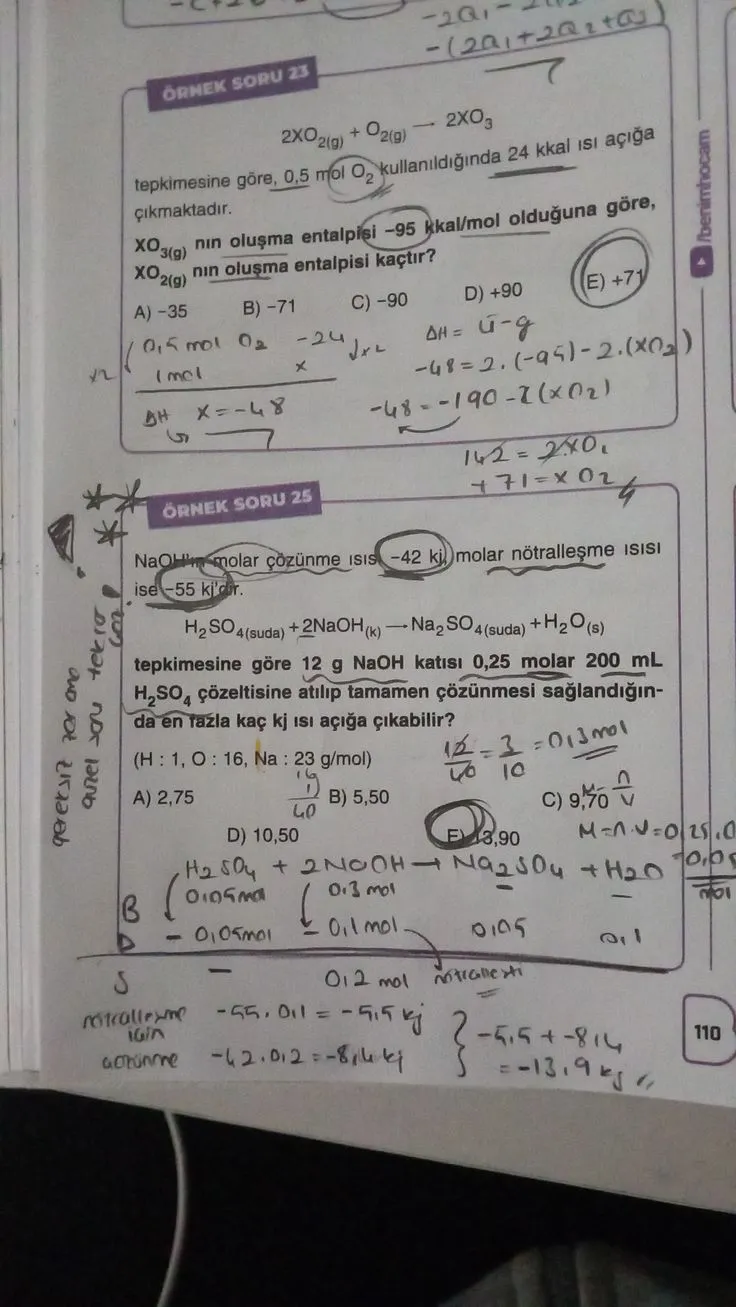 -2a₁-2
-(2a₁+2a₂+a₃)
ÖRNEK SORU 23
2XO₂(g) + O₂(g) → 2XO₃
tepkimesine göre, 0,5 mol O₂ kullanıldığında 24 kkal ısı açığa
çıkmaktadır.
XO₃(g) nın oluşma entalpisi -95 kkal/mol olduğuna göre,
XO₂(g) nın oluşma entalpisi kaçtır?
A) -35 B) -71 C) -90 D) +90 E) +71
0,5 mol O₂ -24 x2
x2 1 mol x
ΔH x = -48
ΔH = ü-g
-48 = 2.(-95)-2.(XO₂)
-48 = -190-2(XO₂)
142 = 2XO₂
+71 = XO₂
/benimhocam
ÖRNEK SORU 25
NaOH'ın molar çözünme ısısı -42 kj, molar nötralleşme ısısı
ise -55 kj'dir.
H₂SO₄(suda) + 2NaOH(k) → Na₂SO₄(suda) + H₂O(s)
tepkimesine göre 12 g NaOH katısı 0,25 molar 200 mL
H₂SO₄ çözeltisine atılıp tamamen çözünmesi sağlandığın-
da en fazla kaç kj ısı açığa çıkabilir?
(H : 1, O : 16, Na : 23 g/mol)
12/40 = 3/10 = 0,3 mol
16
1
40
A) 2,75 B) 5,50 C) 9,70
D) 10,50 E) 13,90
M = n/V
M=n.V=0,25.0
0,05
mol
H₂SO₄ + 2NaOH → Na₂SO₄ + H₂O
B 0,05mol 0,3 mol - -
D - 0,05mol - 0,1 mol 0,05 0,1
S - 0,2 mol nötralleşti
nötralleşme için -55.0,1 = -5,5 kj
çözünme -42.0,2 = -8,4 kj
-5,5 + -8,4
= -13,9 kj
gereksiz zor ama
güzel soru tekrar
çöz!
110